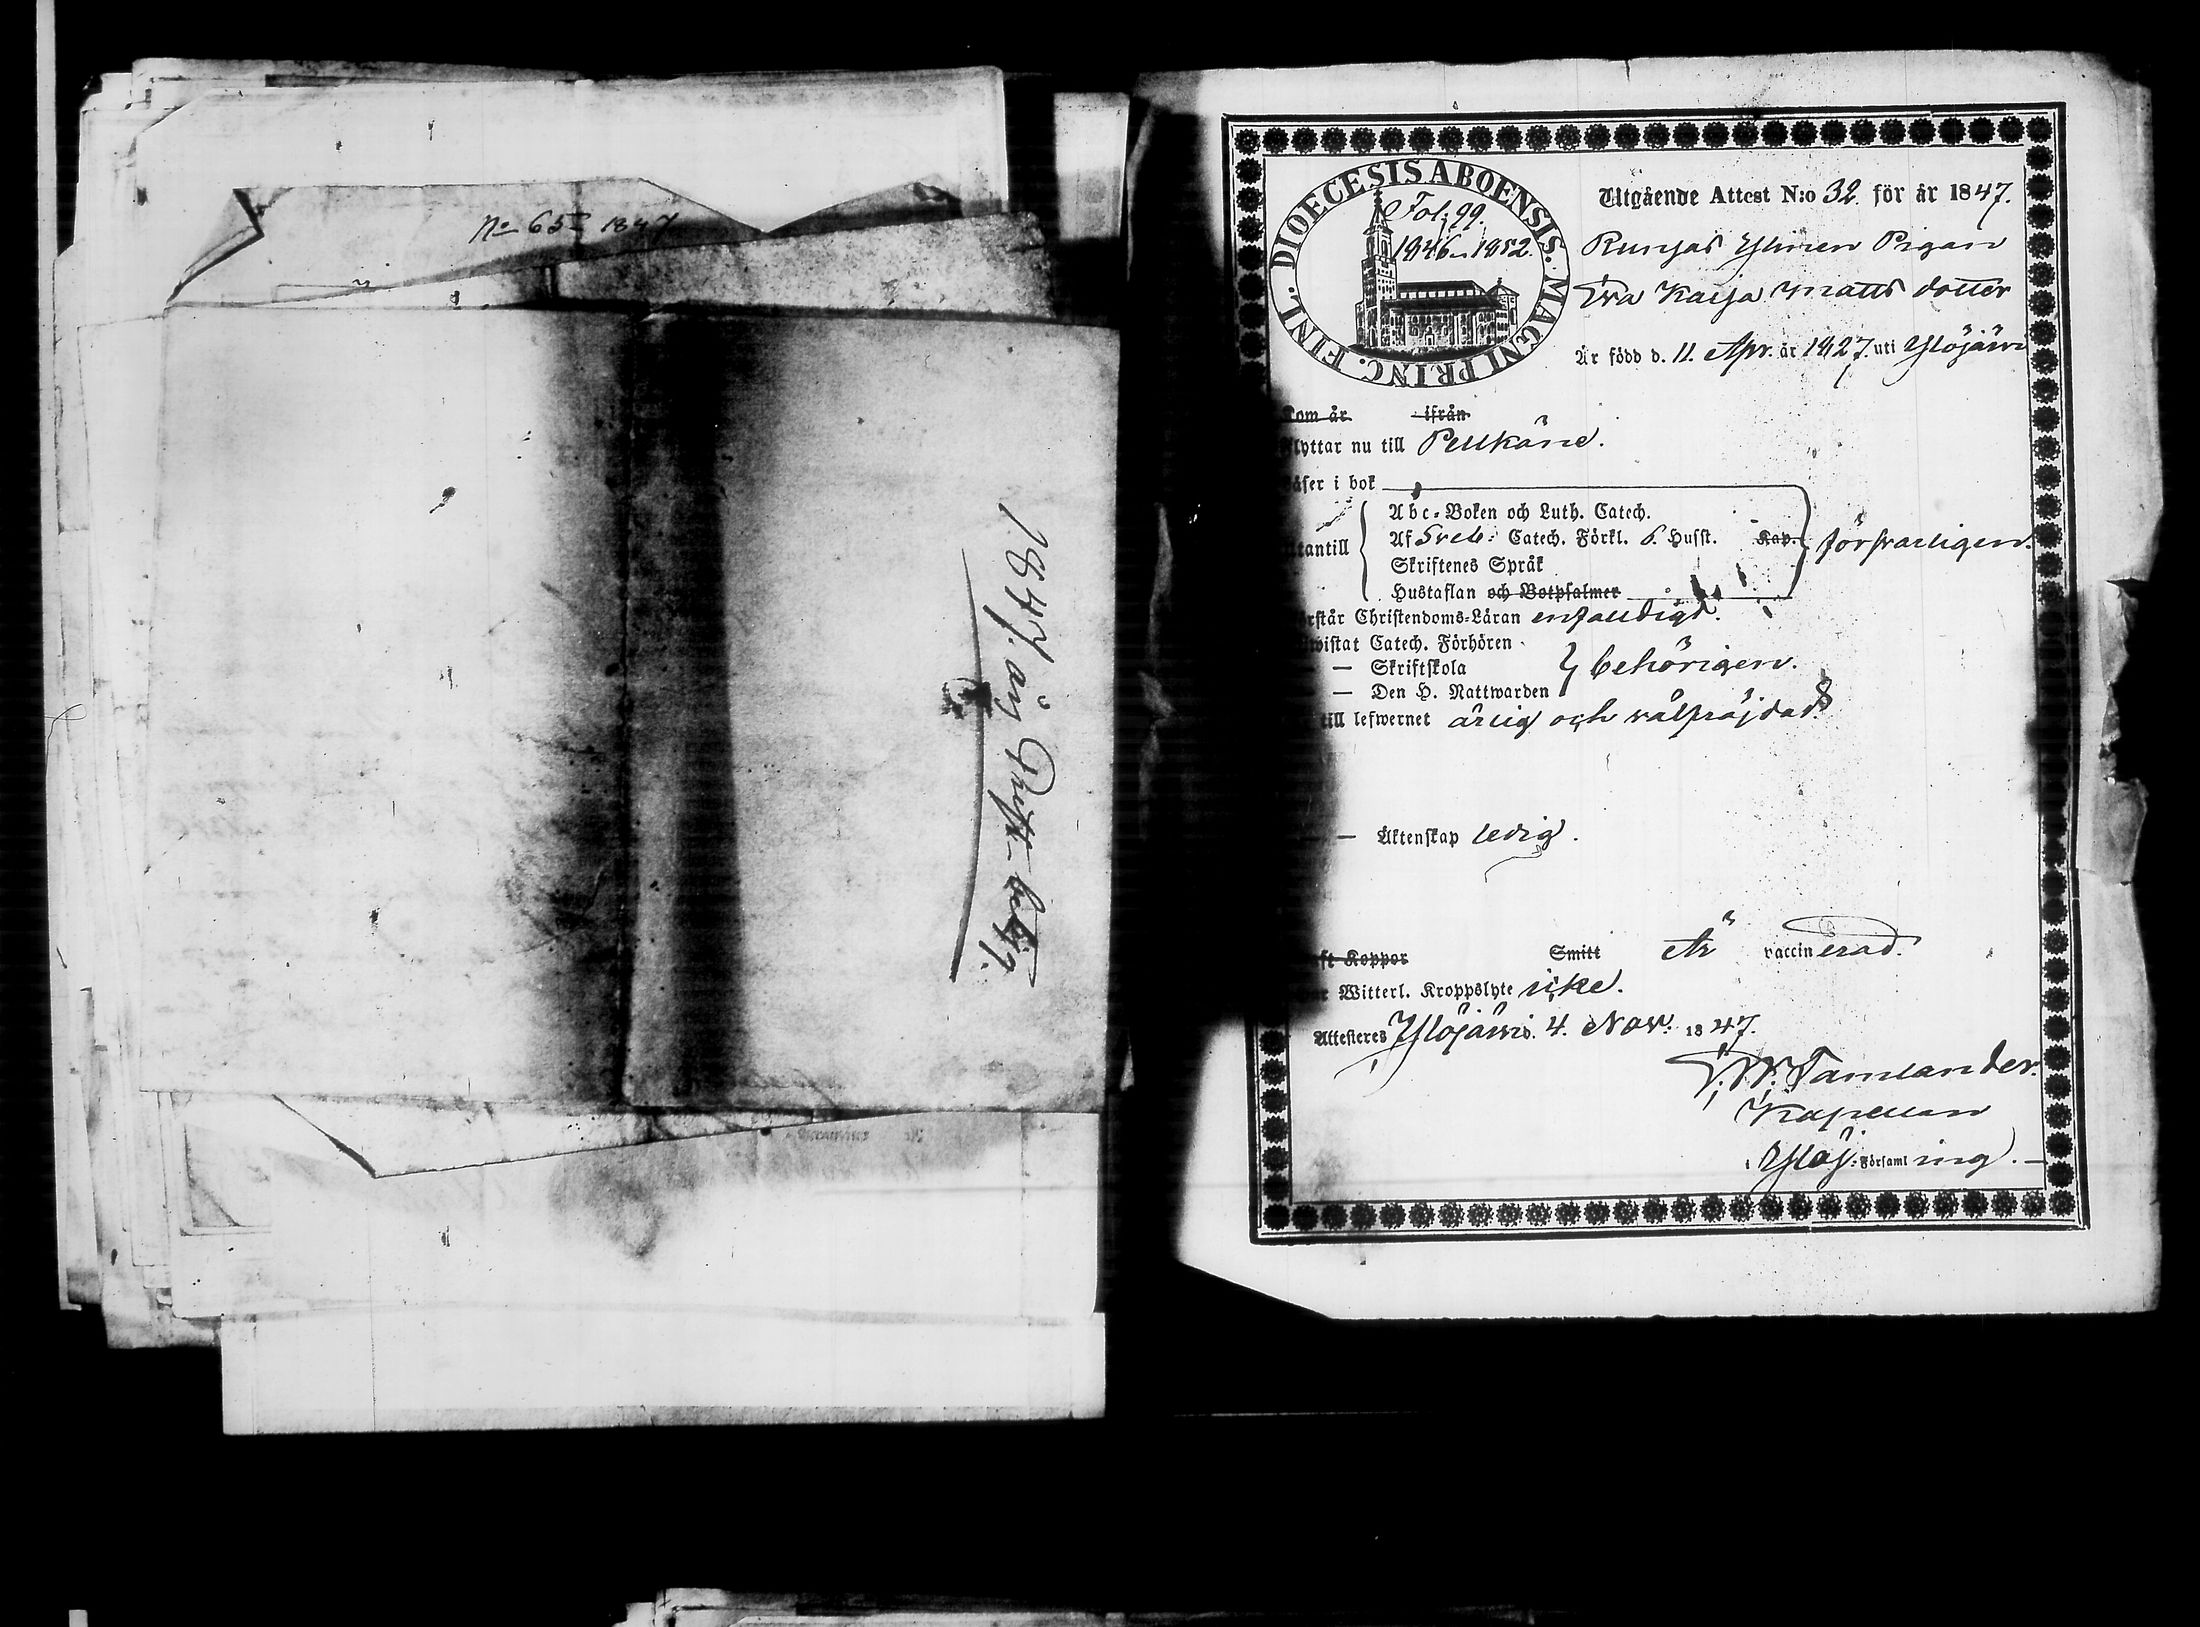 No 65 1847
1847 års Flytt-betyg.
DIOECESIS ABOENSIS. MAGNI PRINC. FINL.
Fol: 99.
1846-1852.
Utgående Attest N:o 32. för år 1847.
Pigan
Eva Kaisa Matts dotter
Är född d. 11. Apr. år 1827. uti Ylöjärvi
Kom år ifrån
Flyttar nu till Pelkäne.
Läser i bok
Abc-Boken och Luth. Catech.
Utantill Af Sveb: Catech. Förkl. 6. Hufst. Kap. försvarligen.
Skriftenes Språk
Hustaflan och Botpsalmer
Förstår Christendoms-Läran enfaldigt.
Bewistat Catech. Förhören
— Skriftskola behörigen.
— Den H. Nattwarden
till lefwernet ärlig och välfräjdad.
— Äktenskap ledig.
Haft Koppor Smitt Är vaccinerad.
Har Witterl. Kroppslyte icke.
Attesteres Ylöjärvi d. 4. Nov. 1847.
Tamlander.
Kapellan
i Ylöj: Församling.